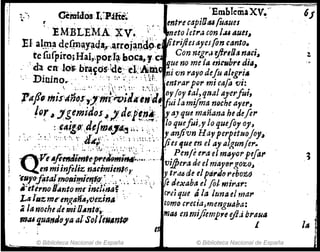 Gemidos I. Parte.
EMBLEMA XV.
El alma desmayada, arrojando el
te suspiro; Hai, por la boca, y ca
da en los braços de el Amo
Diuino.
Passo mis años, y mi vida en do
lor, y gemidos, y de pena
caigo desmaya
da.
Que ascendiente predomina
en mi infeliz nacimiento,
cuyo fatal mouimiento
à eterno llanto me inclina?
La luz me engaña, vezina
à la noche de mi llanto,
mas quando ya al Sol leuanto
Emblema XV.
65
entre capillas suaues
meto letra con las aues,
si tristes ayes son canto.
Con negra estrella naci, 2
que no me la encubre dia,
ni vn rayo de su alegria
entrar por mi casa vi:
oy soy tal, qual ayer fui,
fui la misma noche ayer,
y ay que mañana he de ser
lo que fui, y lo que soy oy,
y ansi vn Hay perpetuo soy,
si es que en el ay algun ser.
Pensè era el mayor pesar 3
vispera de el mayor gozo,
y tras de el pardo rebozo
se dexaba el sol mirar:
crei que à la luna el mar
como crecia, menguaba:
mas en mi siempre està braua
I la
© Biblioteca Nacional de España
© Biblioteca Nacional de España